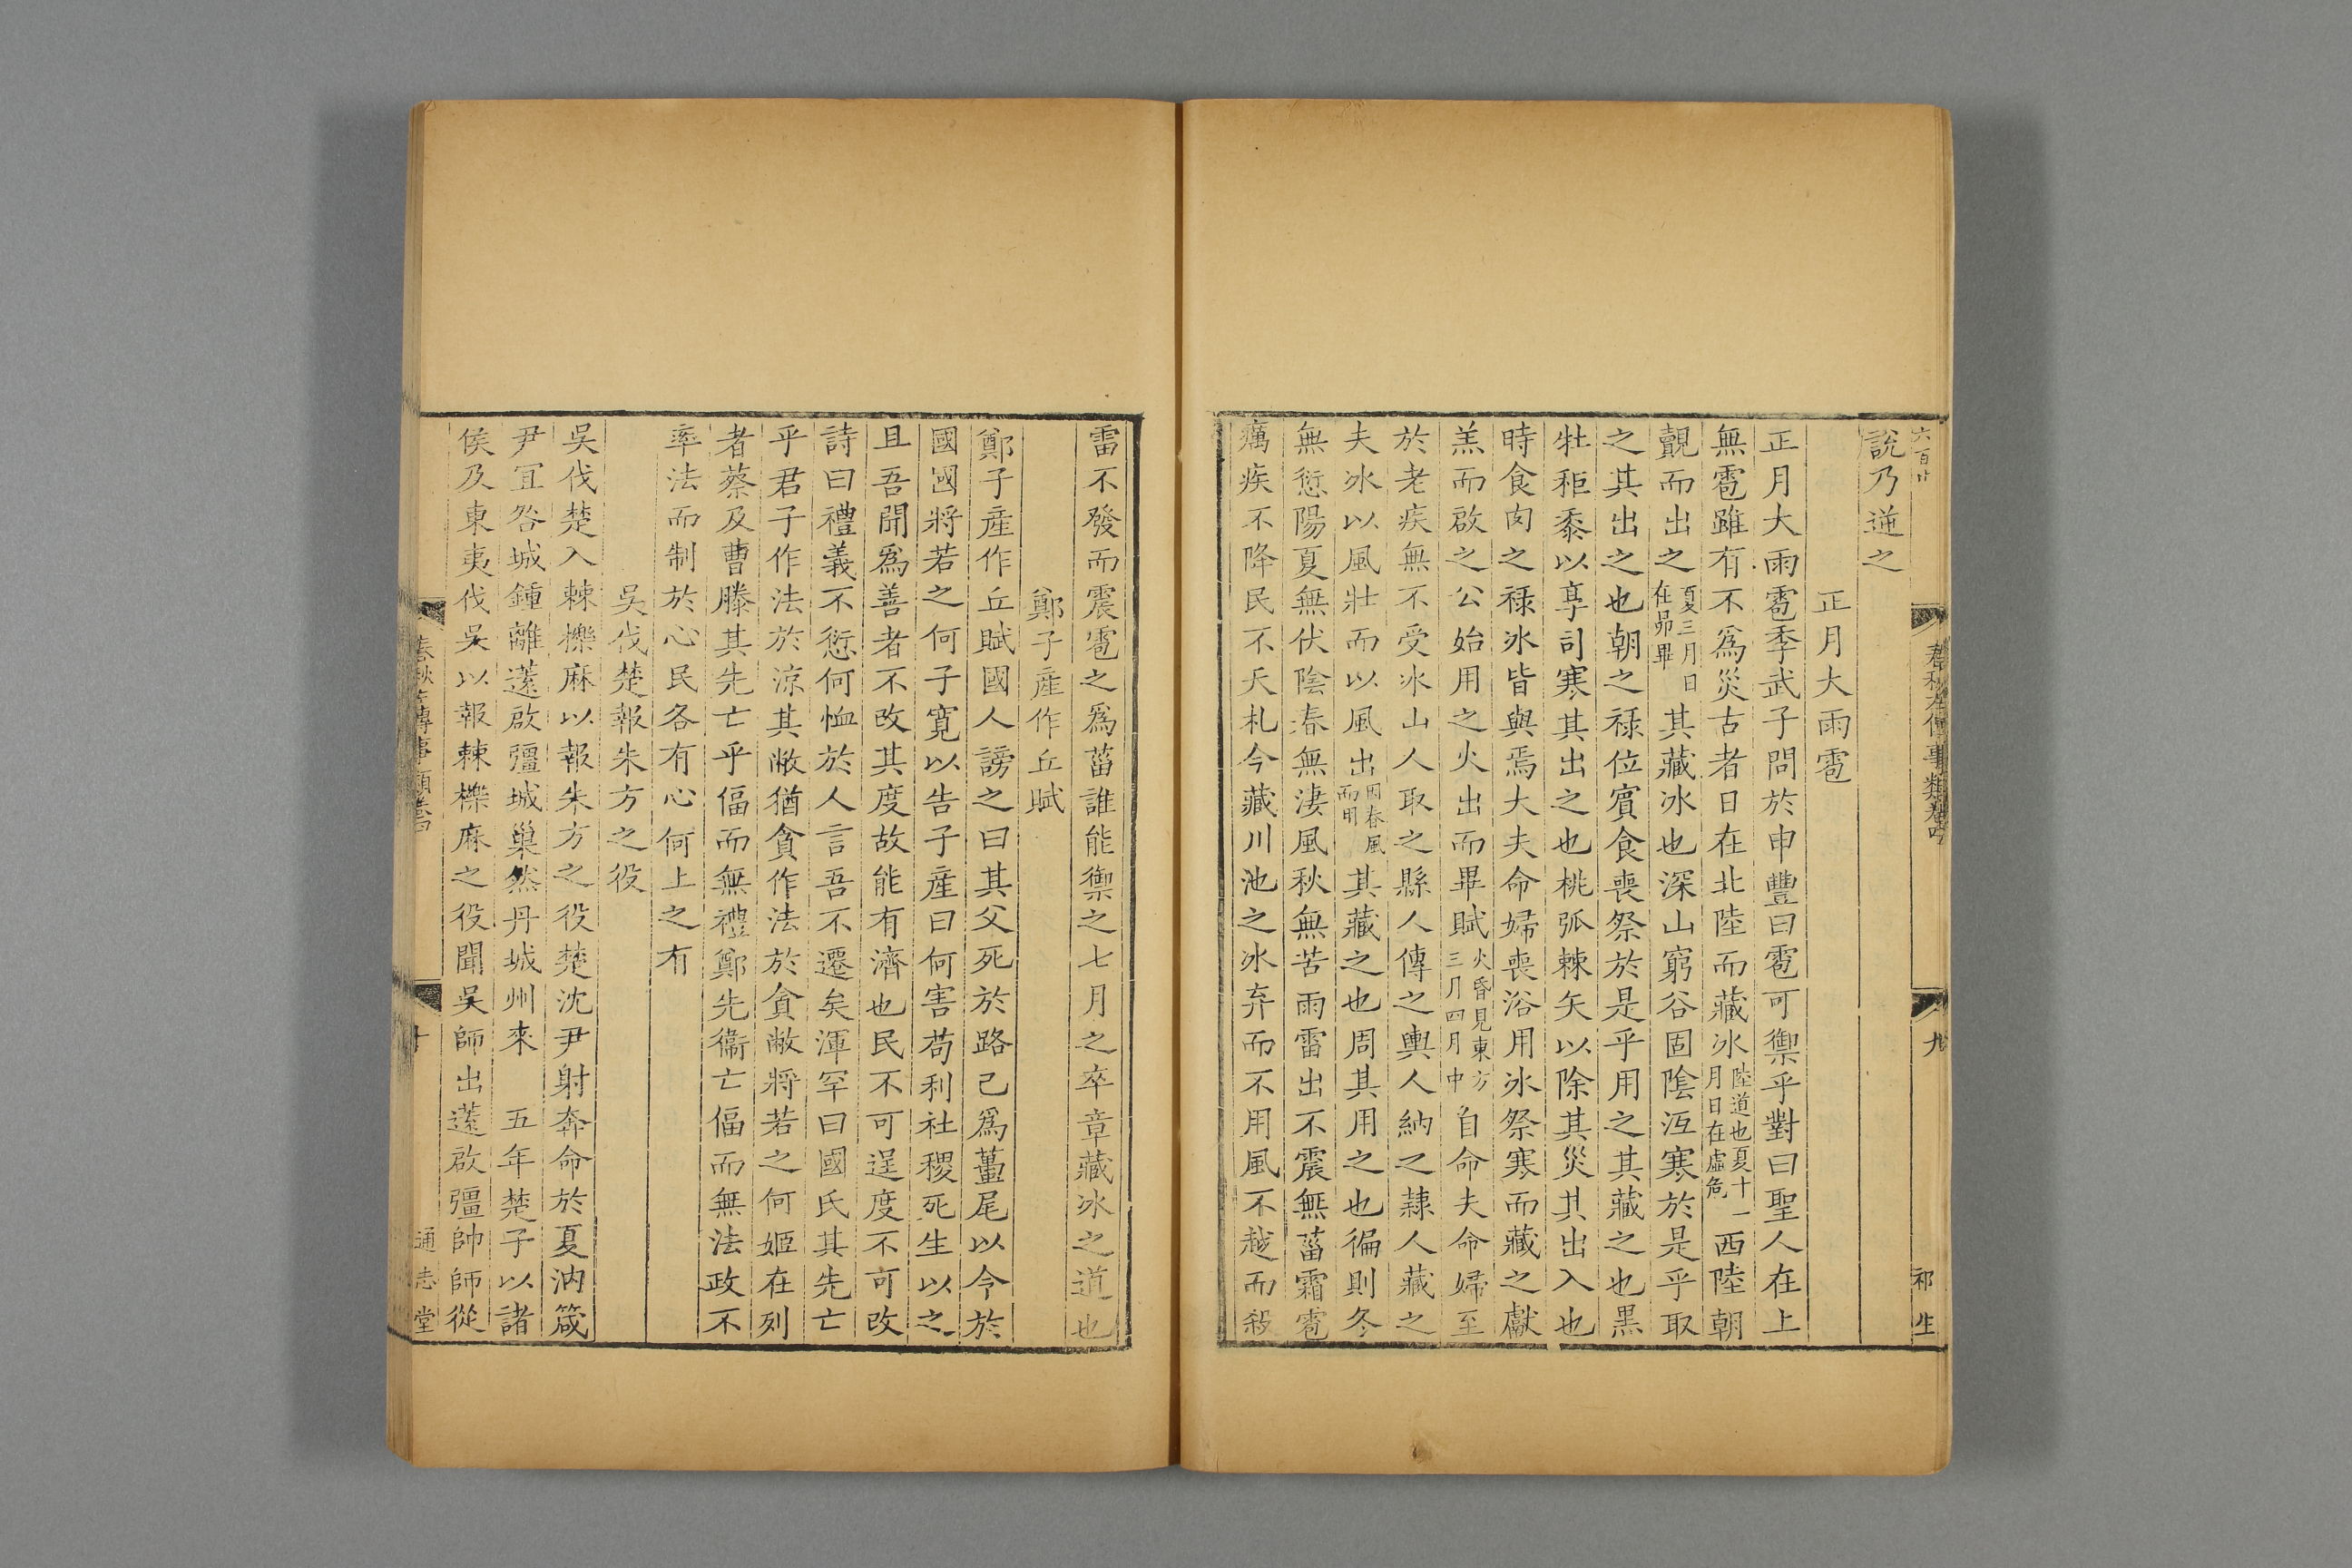 六百廿
春秋左傳事類卷四
九
祁生
說乃逆之
正月大雨雹
正月大雨雹季武子問於申豐曰雹可禦乎對曰聖人在上
無雹雖有不爲災古者日在北陸而藏冰陸道也夏十一月日在虛危西陸朝
覿而出之夏三月日在昴畢其藏冰也深山窮谷固陰沍寒於是乎取
之其出之也朝之祿位賓食喪祭於是乎用之其藏之也黑
牡秬黍以享司寒其出之也桃弧棘矢以除其災其出入也
時食肉之祿冰皆與焉大夫命婦喪浴用冰祭寒而藏之獻
羔而啟之公始用之火出而畢賦火昏見東方三月四月中自命夫命婦至
於老疾無不受冰山人取之縣人傳之輿人納之隸人藏之
夫冰以風壯而以風出因春風而用其藏之也周其用之也徧則冬
無愆陽夏無伏陰春無淒風秋無苦雨雷出不震無菑霜雹
癘疾不降民不夭札今藏川池之冰弃而不用風不越而殺
雷不發而震雹之爲菑誰能禦之七月之卒章藏冰之道也
鄭子產作丘賦
鄭子產作丘賦國人謗之曰其父死於路己爲蠆尾以令於
國國將若之何子寬以告子產曰何害苟利社稷死生以之
且吾聞爲善者不改其度故能有濟也民不可逞度不可改
詩曰禮義不愆何恤於人言吾不遷矣渾罕曰國氏其先亡
乎君子作法於涼其敝猶貪作法於貪敝將若之何姬在列
者蔡及曹滕其先亡乎偪而無禮鄭先衞亡偪而無法政不
率法而制於心民各有心何上之有
吳伐楚報朱方之役
吳伐楚入棘櫟麻以報朱方之役楚沈尹射奔命於夏汭箴
尹宜咎城鍾離薳啟彊城巢然丹城州來　五年楚子以諸
侯及東夷伐吳以報棘櫟麻之役聞吳師出薳啟彊帥師從
春秋左傳事類卷四
十
通志堂